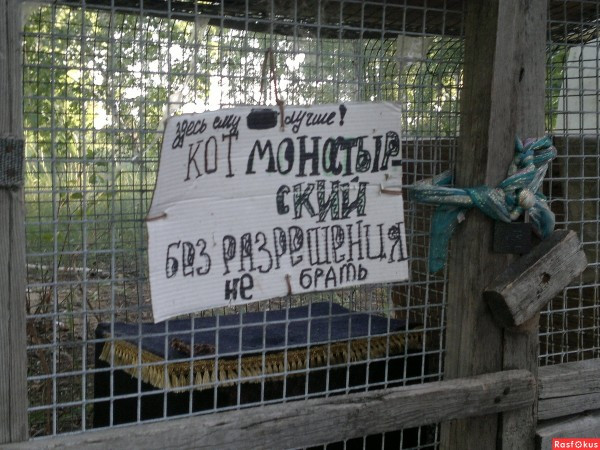 здесь ему лучше!
КОТ МОНАСТЫР-
СКИЙ
БЕЗ РАЗРЕШЕНИЯ
НЕ БРАТЬ
RasfOkus